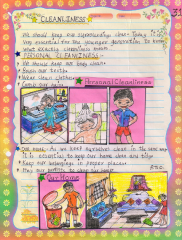 CLEANLINESS
We should keep our surroundings clean. Today it is
very essential for the younger generation to know
what exactly cleanliness mean.
PERSONAL CLEANLINESS
We should keep our body clean.
Brush our teeth.
Wear clean clothes.
Comb our hair.
Personal Cleanliness
As we keep ourselves clean in the same way
it is essential to keep our home clean and tidy.
Keep our belongings in proper places.
our to clean our home.
P.T.O.
Our Home